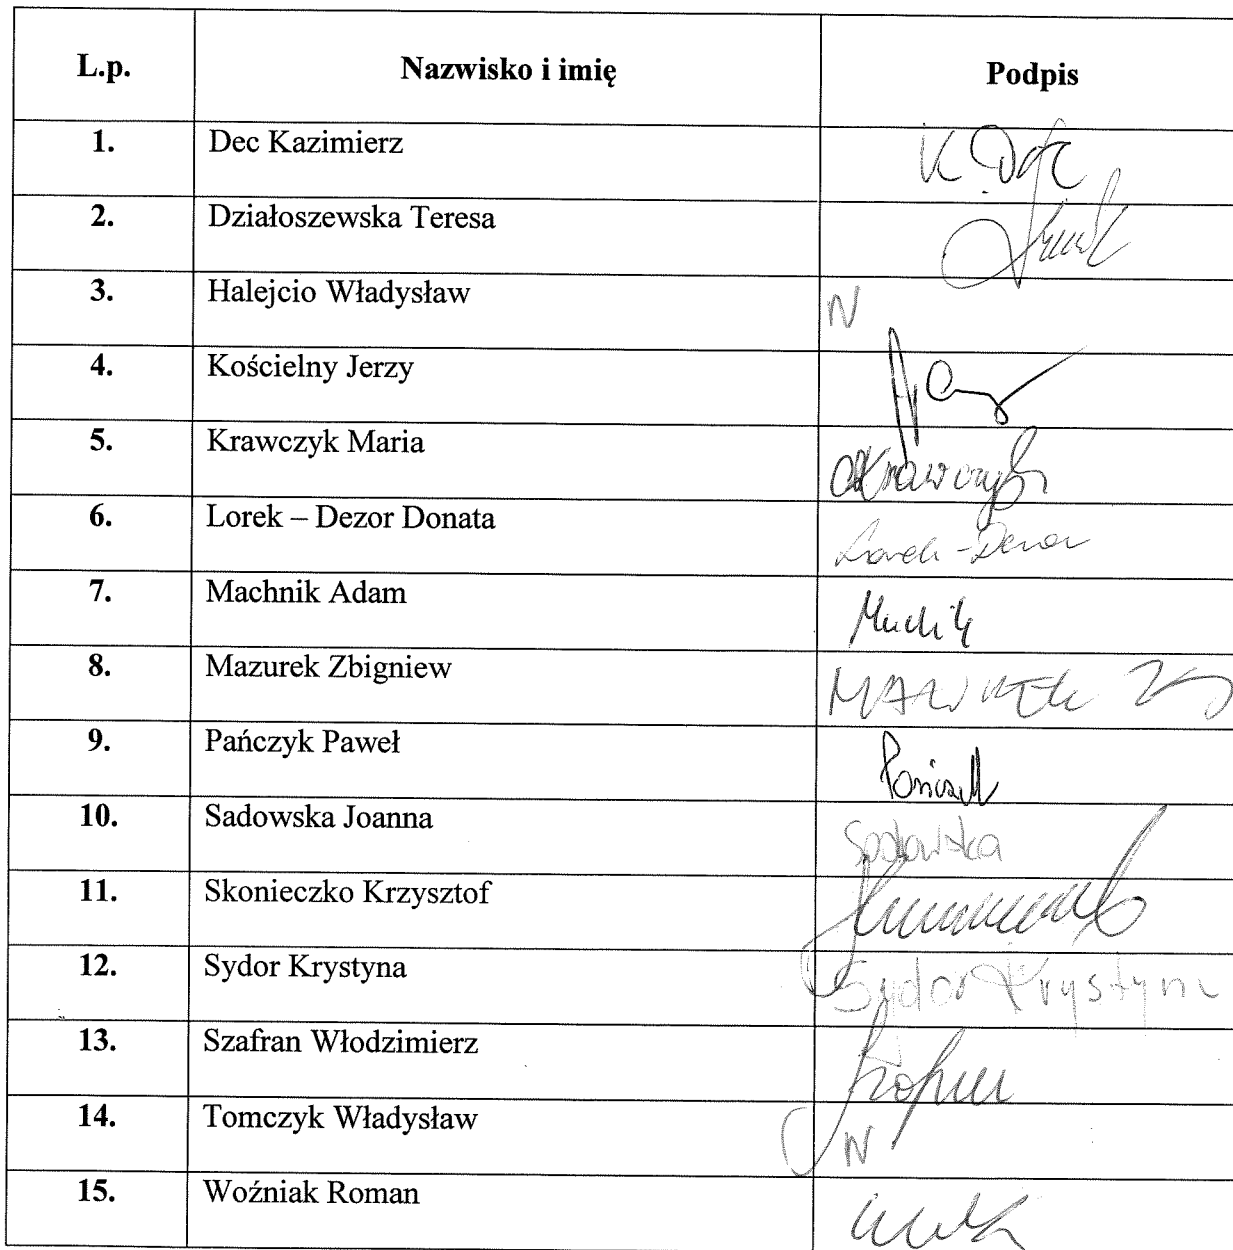 L.p. Nazwisko i imię Podpis
1. Dec Kazimierz K. Dec
2. Działoszewska Teresa
3. Halejcio Władysław N
4. Kościelny Jerzy
5. Krawczyk Maria Krawczyk
6. Lorek – Dezor Donata Lorek - Dezor
7. Machnik Adam
8. Mazurek Zbigniew MAZUREK
9. Pańczyk Paweł
10. Sadowska Joanna Sadowska
11. Skonieczko Krzysztof
12. Sydor Krystyna Sydor Krystyna
13. Szafran Włodzimierz
14. Tomczyk Władysław N
15. Woźniak Roman